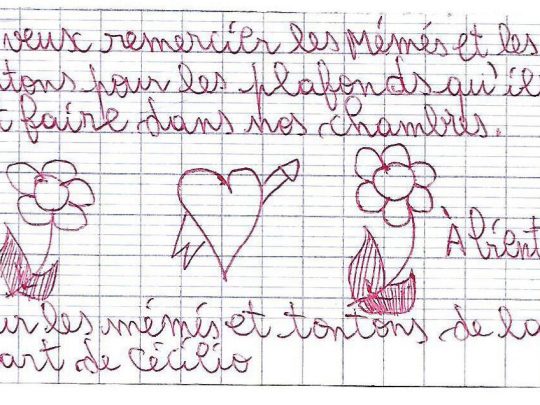 veux remercier les mémés et les
tons pour les plafonds qu'il
t faire dans nos chambres.
À bient
ur les mémés et tontons de la
art de Cécilio